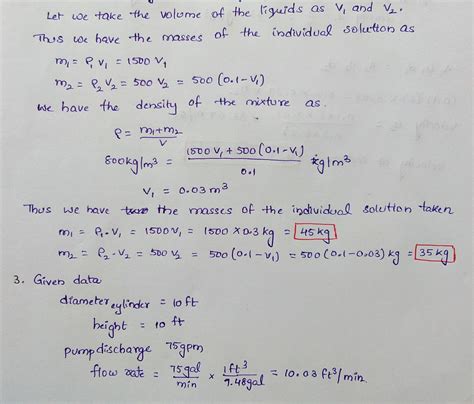 Let we take the volume of the liquids as V₁ and V₂.
Thus we have the masses of the individual solution as
m₁ = ρ₁ V₁ = 1500 V₁
m₂ = ρ₂ V₂ = 500 V₂ = 500 (0.1-V₁)
We have the density of the mixture as.
ρ = (m₁+m₂)/V
800kg/m³ = (1500 V₁ + 500 (0.1-V₁))/0.1 kg/m³
V₁ = 0.03 m³
Thus we have the masses of the individual solution taken
m₁ = ρ₁.V₁ = 1500 V₁ = 1500 X0.3 kg = 45 kg
m₂ = ρ₂-V₂ = 500 V₂ = 500 (0.1-V₁) = 500 (0.1-0.03) kg = 35 kg
3. Given data
diameter cylinder = 10 ft
height = 10 ft
pump discharge 75gpm
flow rate = 75gal/min × 1ft³/7.48gal = 10.03 ft³/min.